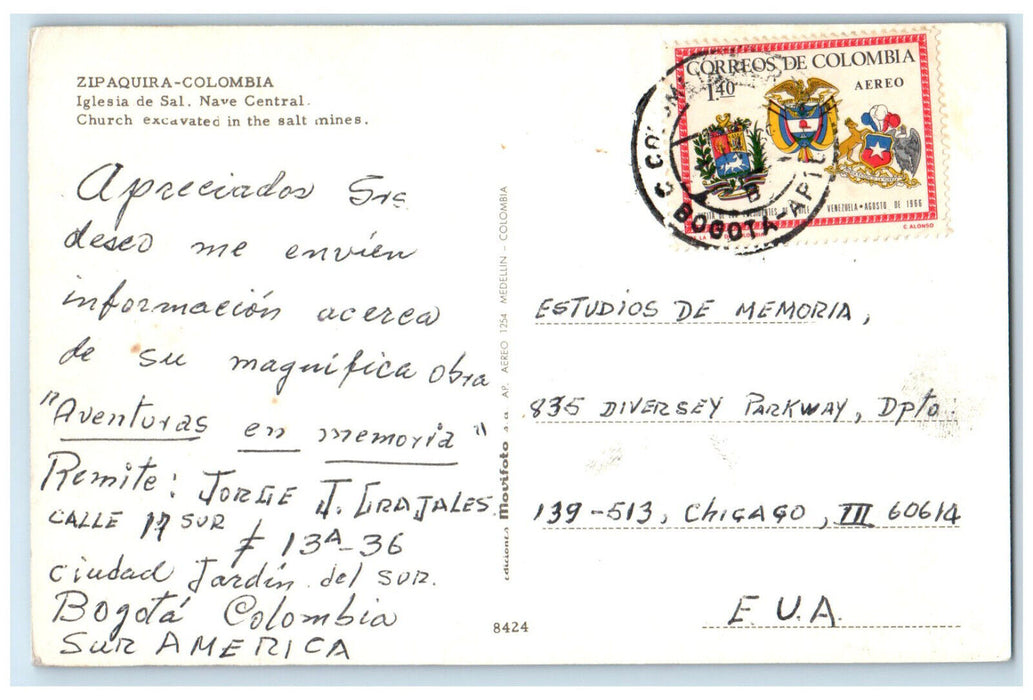 ZIPAQUIRA-COLOMBIA
Iglesia de Sal. Nave Central.
Church excavated in the salt mines.
Apreciados Srs
deseo me envíen
información acerca
de su magnífica obra
"Aventuras en memoria"
Remite: JORGE J. GRAJALES.
CALLE 17 SUR
# 13A-36
Ciudad Jardín del SUR.
Bogotá Colombia
SUR AMERICA
Ediciones Movifoto s.a. AP. AEREO 1254 MEDELLIN - COLOMBIA
8424
CORREOS DE COLOMBIA
1.40
AEREO
DE LOS PRESIDENTES DE CHILE VENEZUELA - AGOSTO DE 1966
C. ALONSO
BOGOTA
B
ESTUDIOS DE MEMORIA,
835 DIVERSEY PARKWAY, Dpto.
139-513, CHICAGO, III 60614
E.U.A.